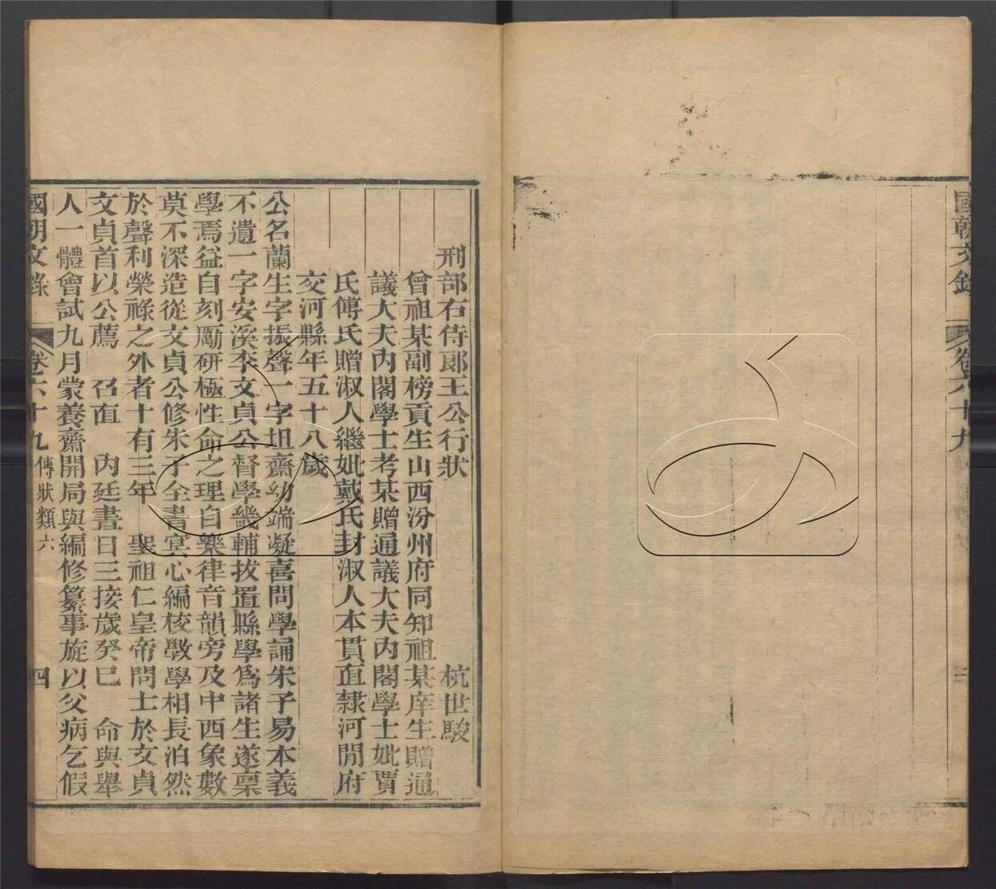 國朝文錄
卷六十九
刑部右侍郎王公行狀 杭世駿
曾祖某副榜貢生山西汾州府同知祖某庠生贈通
議大夫內閣學士考某贈通議大夫內閣學士妣賈
氏傅氏贈淑人繼妣戴氏封淑人本貫直隸河間府
交河縣年五十八歲
公名蘭生字振聲一字坦齋幼端凝喜問學誦朱子易本義
不遺一字安溪李文貞公督學畿輔拔置縣學爲諸生遂稟
學焉益自刻勵研極性命之理自樂律音韻旁及中西象數
莫不深造從文貞公修朱子全書冥心編校斆學相長泊然
於聲利榮祿之外者十有三年 聖祖仁皇帝問士於文貞
文貞首以公薦 召直 內廷晝日三接歲癸巳 命與舉
人一體會試九月蒙養齋開局與編修纂事旋以父病乞假
國朝文錄 卷六十九 傳狀類六 四